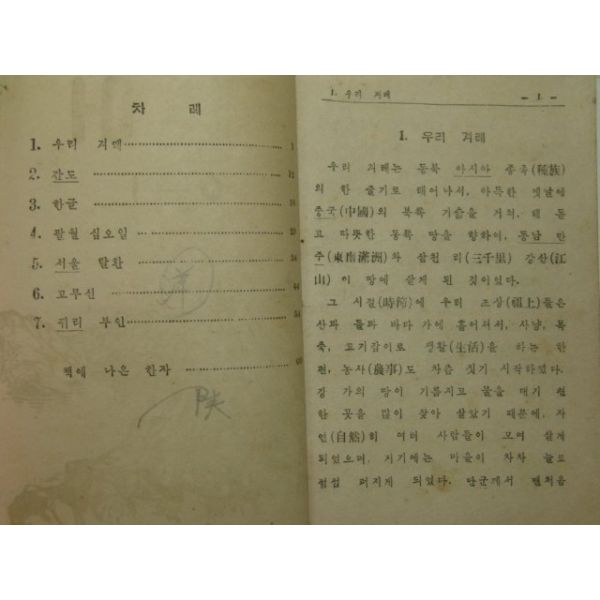 차 례
1. 우리 겨레
2. 간도
3. 한글
4. 팔월 십오일
5. 서울 탈환
6. 고무신
7. 퀴리 부인
책에 나온 한자
1. 우리 겨레 — 1 —
1. 우리 겨레
우리 겨레는 동북 아시아 종족(種族)
의 한 줄기로 태어나서, 아득한 옛날에
중국(中國)의 북쪽 기슭을 거쳐, 해 돋
고 따뜻한 동쪽 땅을 향하여, 동남 만
주(東南滿洲)와 삼천 리(三千里) 강산(江
山)이 땅에 살게 된 것이었다.
그 시절(時節)에 우리 조상(祖上)들은
산과 들과 바다 가에 흩어져서, 사냥, 목
축, 고기잡이로 생활(生活)을 하는 한
편, 농사(農事)도 차츰 짓기 시작하였다.
강 가의 땅이 기름지고 물을 대기 편
한 곳을 많이 찾아 살았기 때문에, 자
연(自然)히 여러 사람들이 모여 살게
되었으며, 저기에는 마을이 차차 늘고
점점 퍼지게 되었다. 단군께서 맨처음